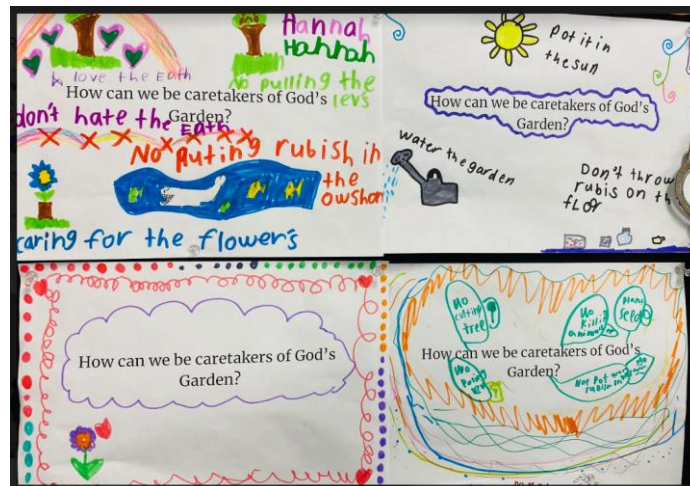 Hannah
Hahnah
I love the Eath
No pulling the
levs
How can we be caretakers of God's
Garden?
don't hate the Eath
No Puting rubish in
the
owshon
caring for the flower's
Pot it in
the sun
How can we be caretakers of God's
Garden?
water the garden
Don't throw
rubis on th
fLor
How can we be caretakers of God's
Garden?
No
cuting
tree
No
Killin
Seed
How can we be caretakers of God's
Garden?
No
Not Pot
rubish in